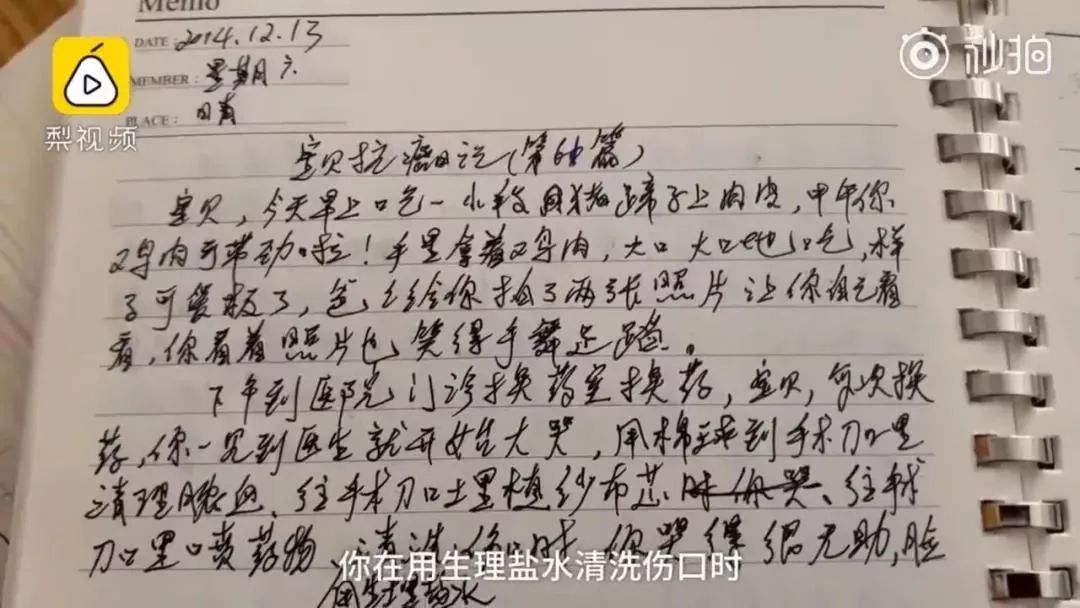 Memo
DATE: 2014.12.13
MEMBER: 星期六
PLACE: 日青
梨视频
秒拍
宝贝抗癌日记(第 篇)
宝贝,今天早上吃一小段 猪蹄子上肉皮,中午你
鸡肉可带劲啦!手里拿着鸡肉,大口大口地吃,样
子可 极了,爸爸给你拍了两张照片让你自己看
看,你看着照片也笑得手舞足蹈。
下午到医院门诊换药室换药,宝贝,每次换
药,你一见到医生就开始大哭,用棉球到手术刀口里
清理脓血、往手术刀口里植纱布芯时你哭、往手术
刀口里喷药物 清洗伤口时 你哭得很无助,脸
用生理盐水
你在用生理盐水清洗伤口时